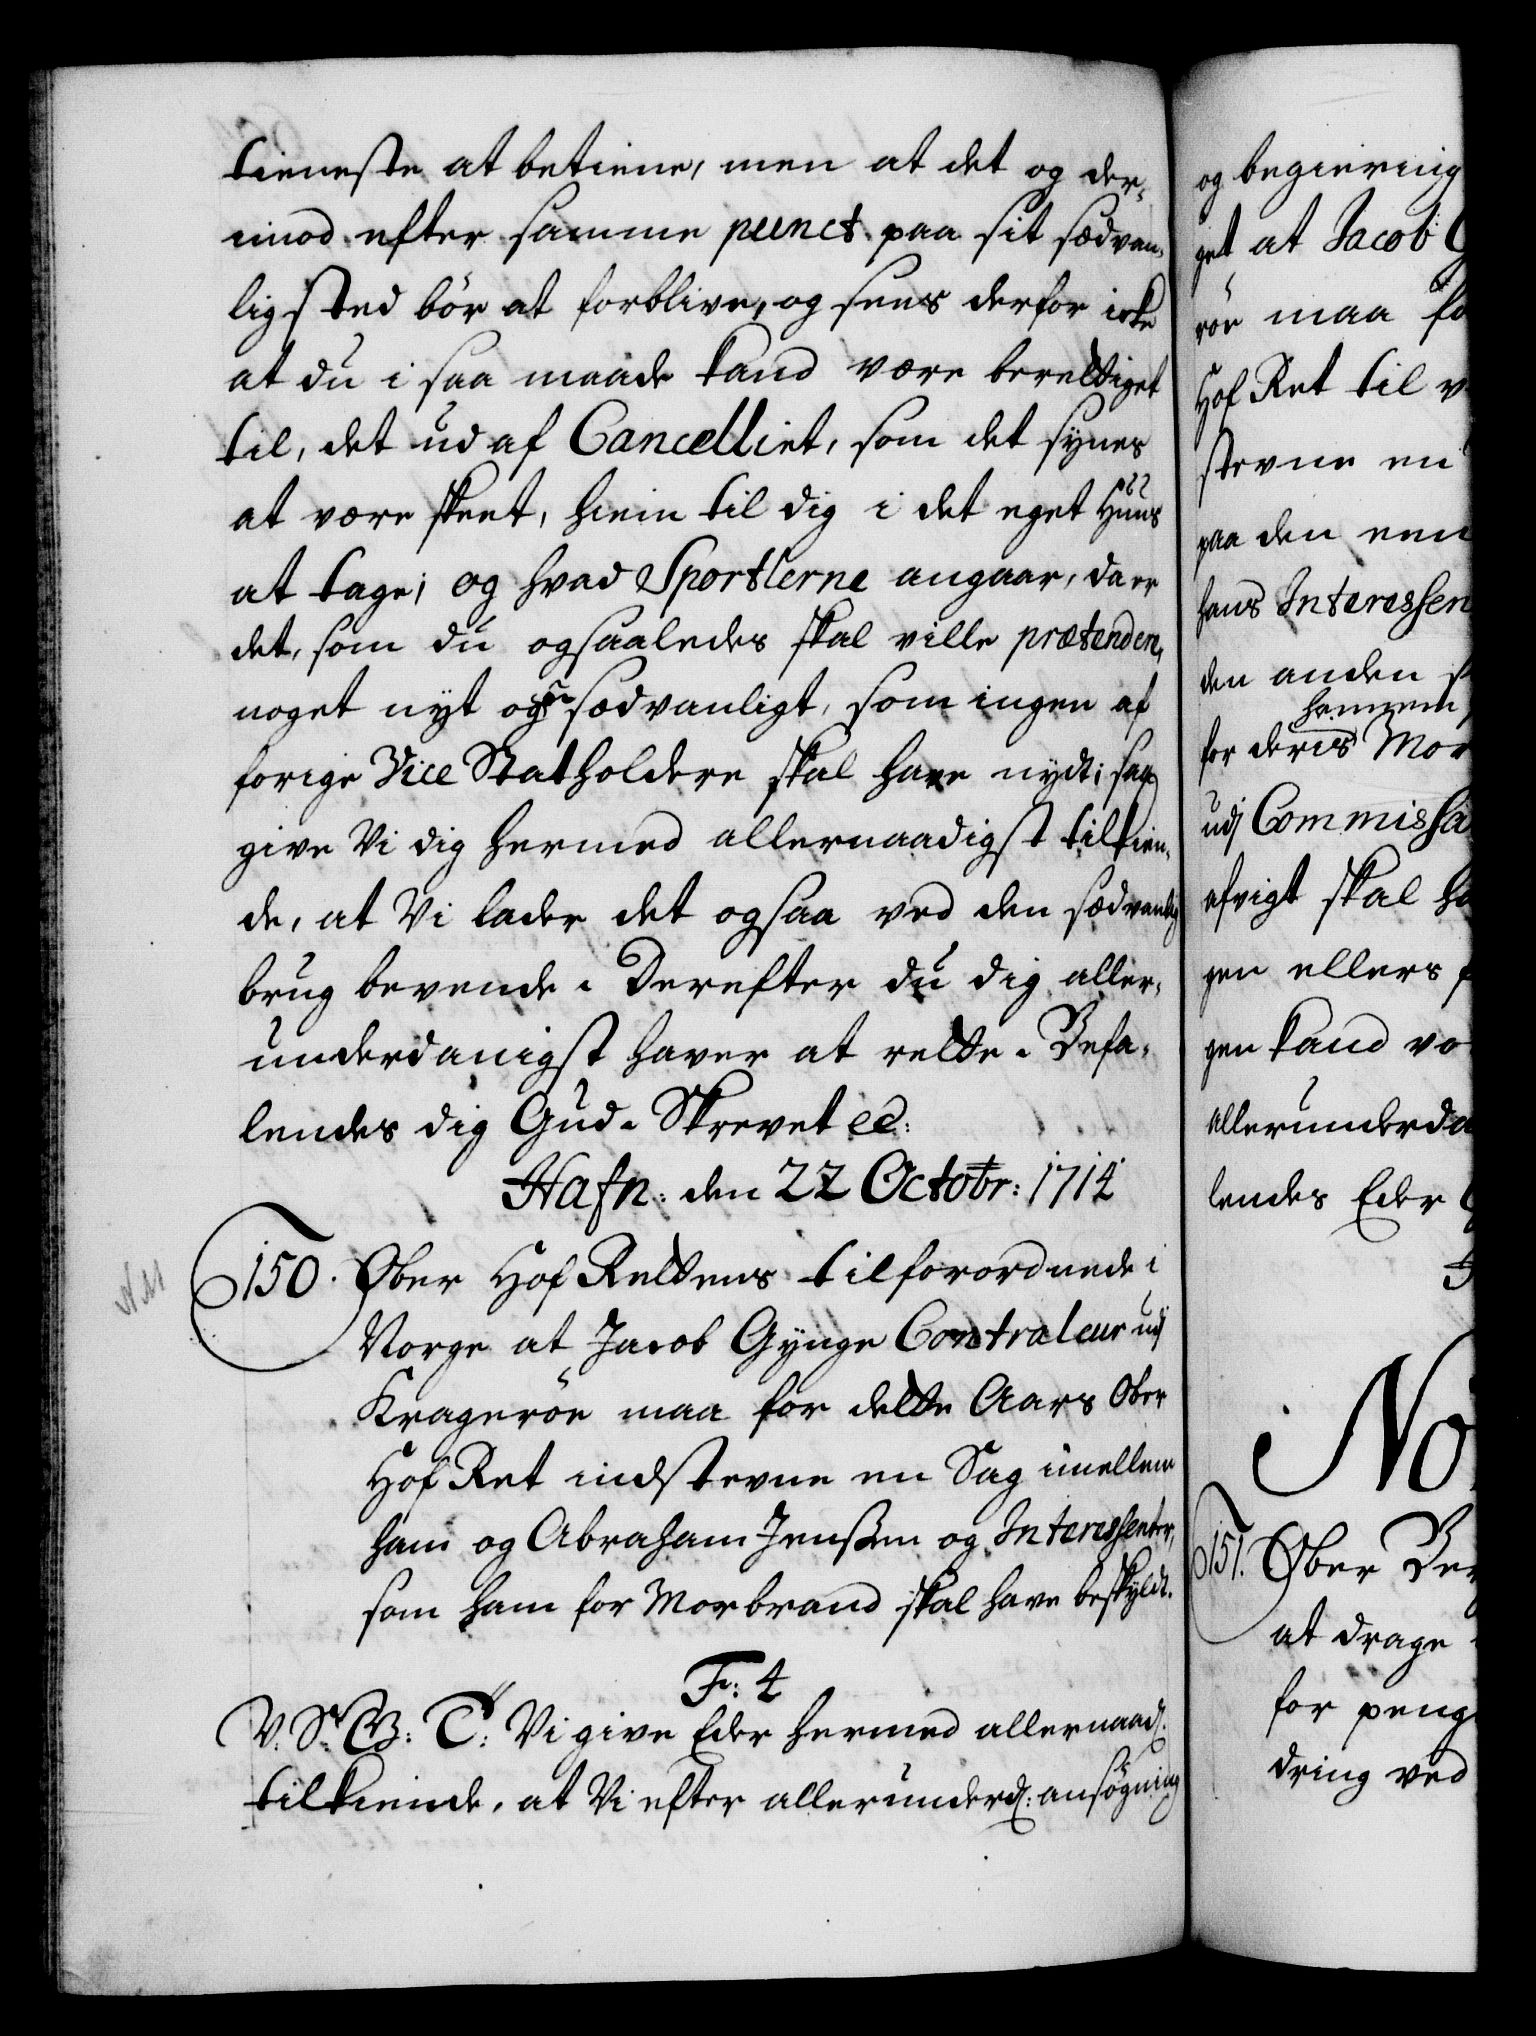 tieneste at betiene, men at det og der-
imod efter samme punct paa sit sædvan-
lig sted bör at forblive, og sees derfor icke
at du i saa maade kand være berettiget
til, det ud af Cancelliet, som det synes
at være skeet, hiem til dig i det eget Huus
at tage; og hvad Sportlerne angaar, da er
det, som du ogsaaledes skal ville prætendere,
noget nyt og sædvanligt, som ingen af
forige Vice Statholdere skal have nydt; saa
give Vi dig hermed allernaadigst tilkien-
de, at Vi lader det ogsaa ved den sædvanlig
brug bevende. Derefter du dig aller-
underdanigst haver at rette. Befa-
lendes dig Gud. Skrevet ec:
Hafn: den 22 Octobr: 1714
150. Ober Hof Rettens tilforordnede i
Norge at Jacob Gynge Contraleur udj
Krageröe maa for dette Aars Ober
Hof Ret indstevne en Sag imellem
ham og Abraham Jenßen og Interessenter,
som ham for Morbrand skal have beskyldt.
F: 4
V. S. G: T: Vi give Eder hermed allernaad:
tilkiende, at Vi efter allerunderd: ansögning
og begiering
get at Jacob G
röe maa fo
Hof Ret til
stevne en
paa den een
hans Interessen
den anden
hannem
for deris Mor
udj Commissa
afvigt skal ha
gen ellers
gen kand
allerunderda
lendes Eder
No
151. Ober Ber
at drage
for peng
dring ved